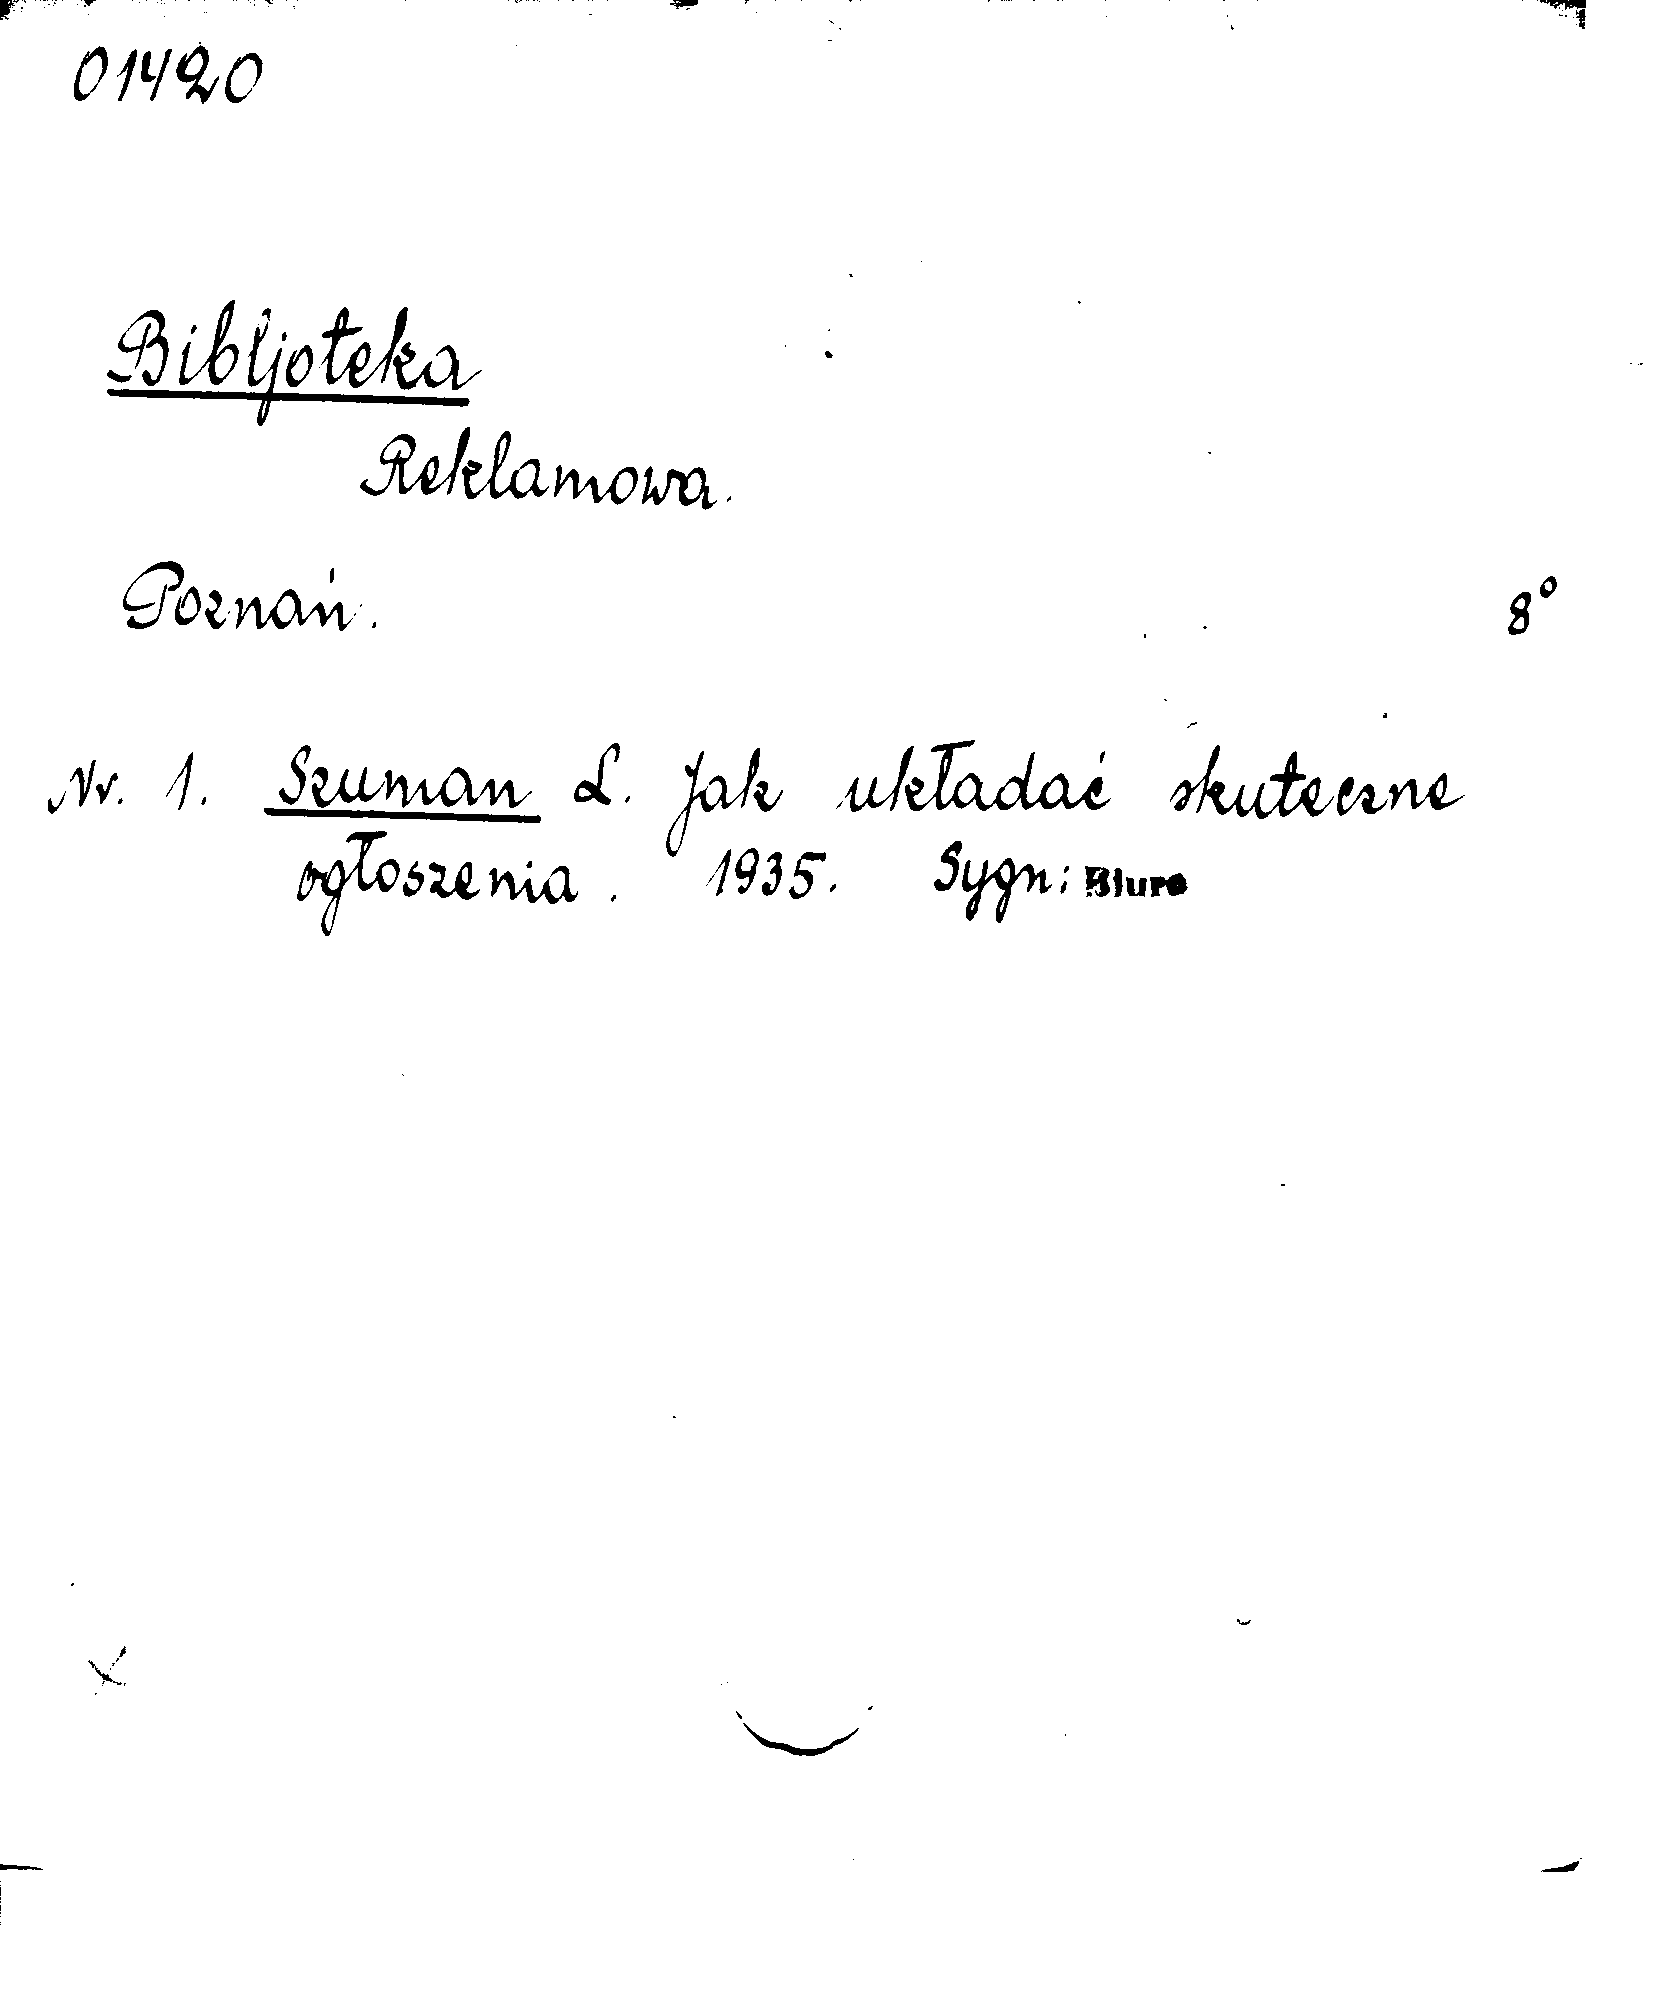 01420
Bibljoteka
Reklamowa.
Poznań. 8°
Nr. 1. Szuman L. Jak układać skuteczne
ogłoszenia. 1935. Sygn: Biuro